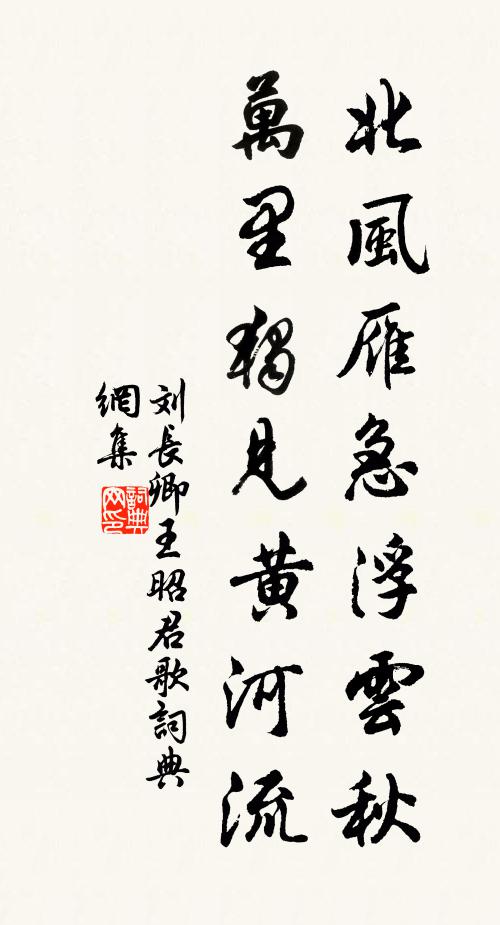 北風雁急浮雲秋
萬里獨見黃河流
刘長卿王昭君歌詞典
網集
詞典
网印